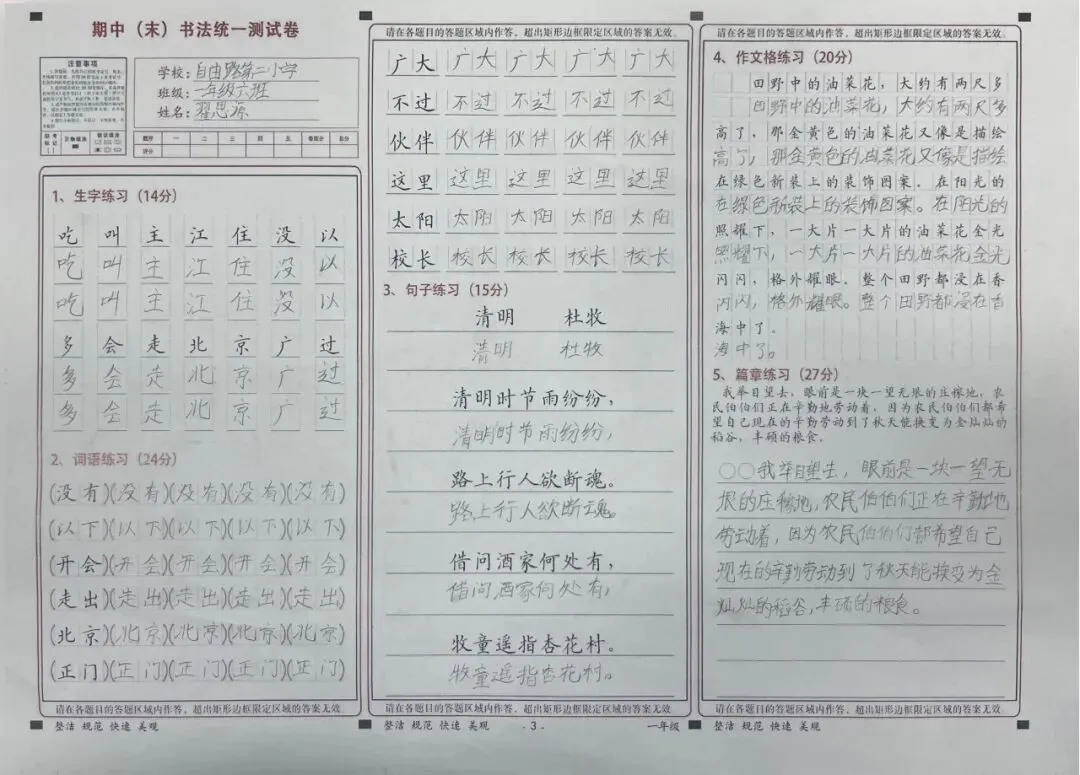 期中（末）书法统一测试卷
注意事项
学校：自由路第二小学
班级：一年级六班
姓名：翟思源
题序 一 二 三 四 五 卷面分 总分
得分
1、生字练习（14分）
吃 叫 主 江 住 没 以
吃 叫 主 江 住 没 以
吃 叫 主 江 住 没 以
多 会 走 北 京 广 过
多 会 走 北 京 广 过
多 会 走 北 京 广 过
2、词语练习（24分）
(没有)(没有)(没有)(没有)(没有)
(以下)(以下)(以下)(以下)(以下)
(开会)(开会)(开会)(开会)(开会)
(走出)(走出)(走出)(走出)(走出)
(北京)(北京)(北京)(北京)(北京)
(正门)(正门)(正门)(正门)(正门)
请在各题目的答题区域内作答，超出矩形边框限定区域的答案无效
整洁 规范 快速 美观
请在各题目的答题区域内作答，超出矩形边框限定区域的答案无效。
广大 广大 广大 广大 广大
不过 不过 不过 不过 不过
伙伴 伙伴 伙伴 伙伴 伙伴
这里 这里 这里 这里 这里
太阳 太阳 太阳 太阳 太阳
校长 校长 校长 校长 校长
3、句子练习（15分）
清明 杜牧
清明 杜牧
清明时节雨纷纷，
清明时节雨纷纷，
路上行人欲断魂。
路上行人欲断魂。
借问酒家何处有，
借问酒家何处有，
牧童遥指杏花村。
牧童遥指杏花村。
请在各题目的答题区域内作答，超出矩形边框限定区域的答案无效
整洁 规范 快速 美观
- 3 -
一年级
请在各题目的答题区域内作答，超出矩形边框限定区域的答案无效。
4、作文格练习（20分）
田野中的油菜花，大约有两尺多
田野中的油菜花，大约有两尺多
高了，那金黄色的油菜花又像是描绘
高了，那金黄色的油菜花又像是描绘
在绿色新装上的装饰图案。在阳光的
在绿色新装上的装饰图案。在阳光的
照耀下，一大片一大片的油菜花金光
照耀下，一大片一大片的油菜花金光
闪闪，格外耀眼。整个田野都浸在香
闪闪，格外耀眼。整个田野都浸在香
海中了。
海中了。
5、篇章练习（27分）
我举目望去，眼前是一块一望无垠的庄稼地，农
民伯伯们正在辛勤地劳动着，因为农民伯伯们都希
望自己现在的辛勤劳动到了秋天能换变为金灿灿的
稻谷，丰硕的粮食。
○○我举目望去，眼前是一块一望无
垠的庄稼地，农民伯伯们正在辛勤地
劳动着，因为农民伯伯们都希望自己
现在的辛勤劳动到了秋天能换变为金
灿灿的稻谷，丰硕的粮食。
请在各题目的答题区域内作答，超出矩形边框限定区域的答案无效
整洁 规范 快速 美观